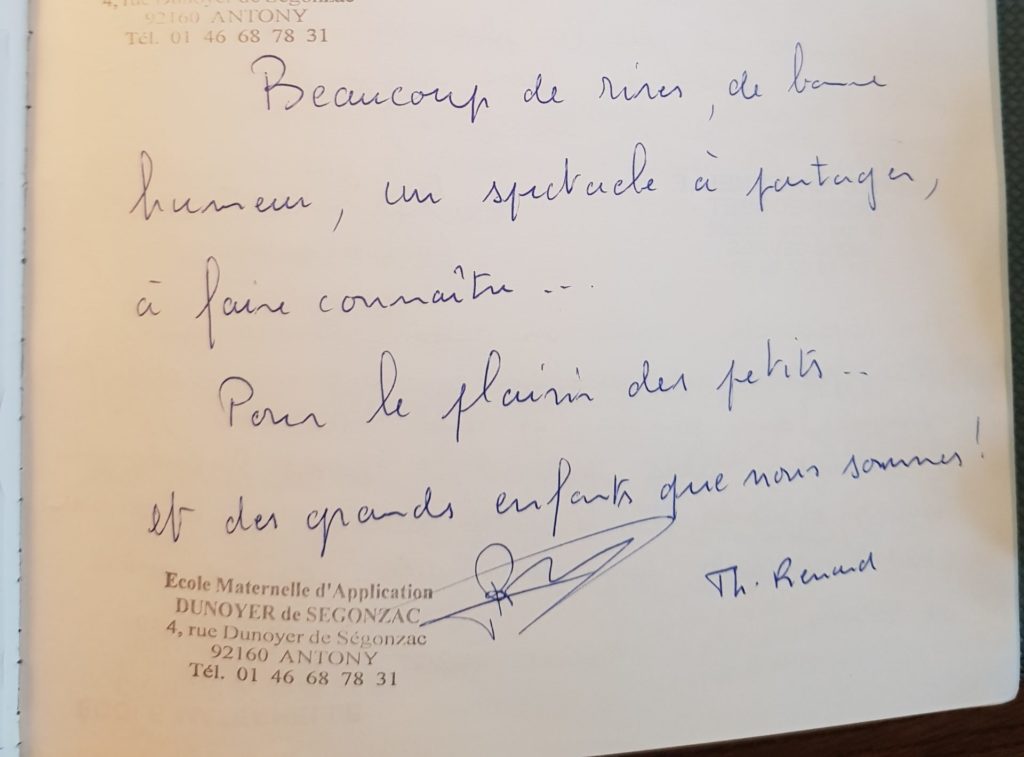 4, rue Dunoyer de Ségonzac
92160 ANTONY
Tél. 01 46 68 78 31
Beaucoup de rires, de bonne
humeur, un spectacle à partager,
à faire connaître ...
Pour le plaisir des petits...
et des grands enfants que nous sommes!
Th. Renard
Ecole Maternelle d'Application
DUNOYER de SEGONZAC
4, rue Dunoyer de Ségonzac
92160 ANTONY
Tél. 01 46 68 78 31